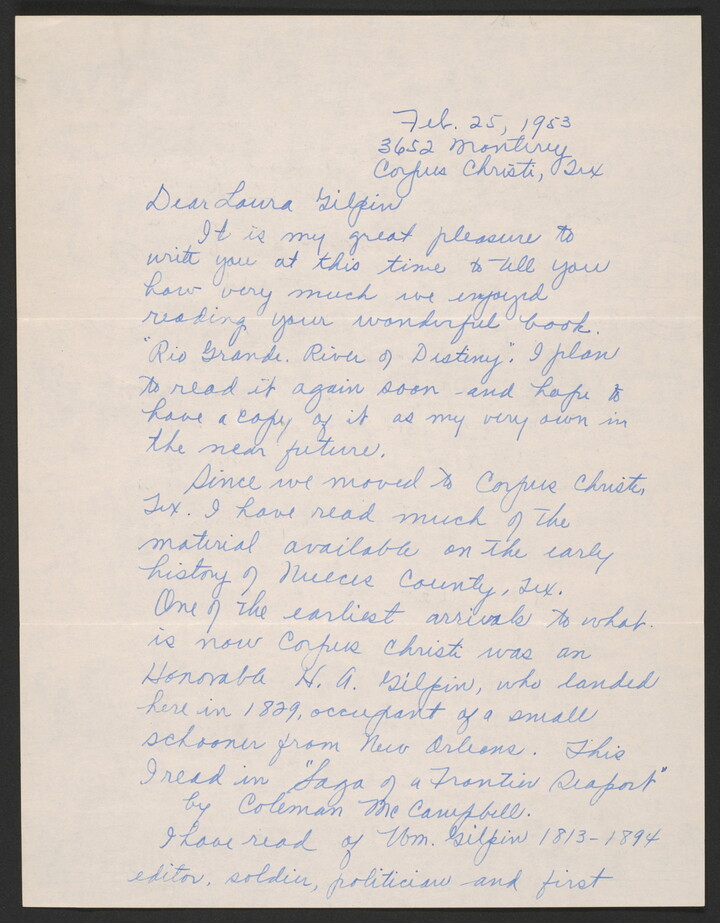 Feb. 25, 1953
3652 Monterey
Corpus Christi, Tex
Dear Laura Gilpin
It is my great pleasure to
write you at this time to tell you
how very much we enjoyed
reading your wonderful book.
"Rio Grande. River of Destiny". I plan
to read it again soon and hope to
have a copy of it as my very own in
the near future.
Since we moved to Corpus Christi,
Tex. I have read much of the
material available on the early
history of Nueces County, Tex.
One of the earliest arrivals to what
is now Corpus Christi was an
Honorable H. A. Gilpin, who landed
here in 1829, occupant of a small
schooner from New Orleans. This
I read in "Saga of a Frontier Seaport"
by Coleman McCampbell.
I have read of Wm. Gilpin 1813-1894
editor, soldier, politician and first